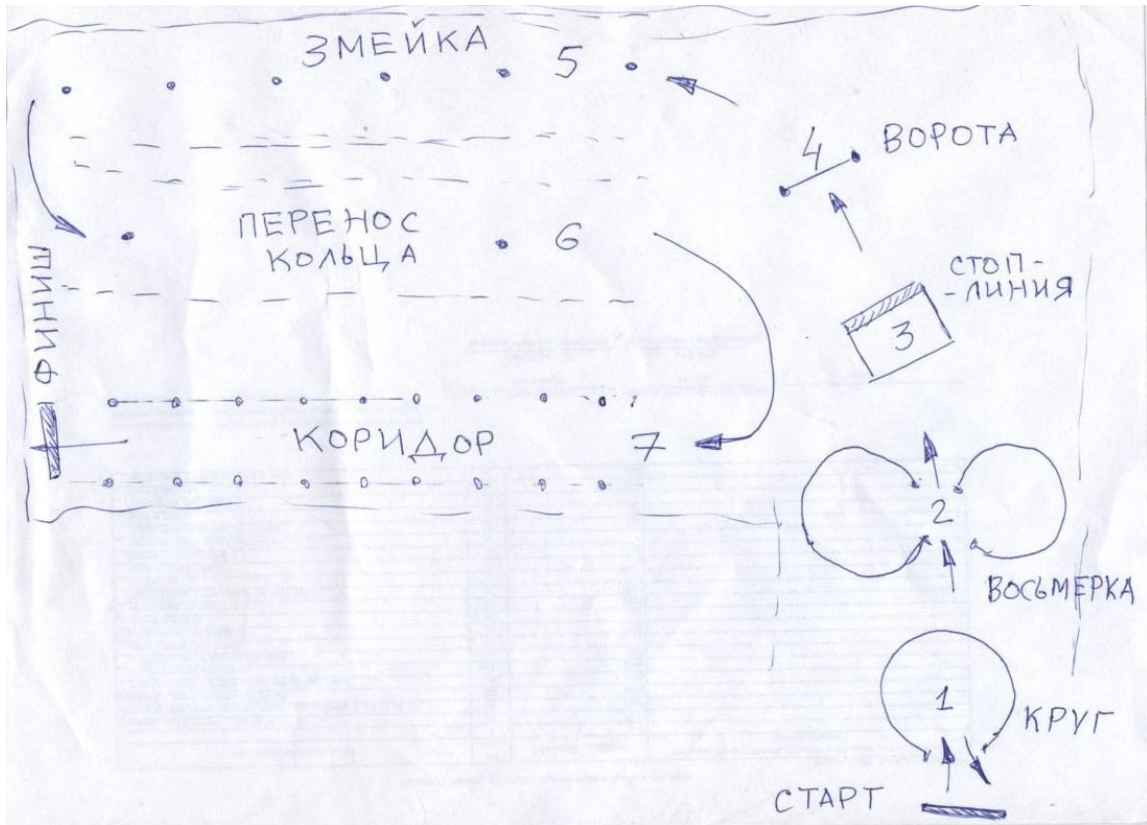 ЗМЕЙКА 5
4 ВОРОТА
ПЕРЕНОС
КОЛЬЦА
6
СТОП-
-ЛИНИЯ
3
ФИНИШ
КОРИДОР 7
2
ВОСЬМЕРКА
1
КРУГ
СТАРТ